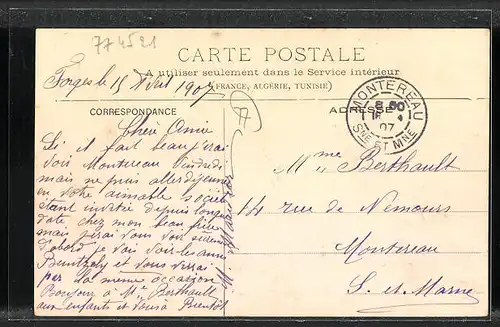 774521
CARTE POSTALE
A utiliser seulement dans le Service intérieur
(FRANCE, ALGERIE, TUNISIE)
Forges le 15 Avril 1907
CORRESPONDANCE
ADRESSE
MONTEREAU
8 50
07
SNE ET MNE
Chère Amie
Si il fait beau j'irai
voir Montereau Vendredi
mais ne puis aller déjeuner
en votre aimable société
étant invitée depuis longue
date chez mon beau frère
mais j'irai vous voir
d'abord je vais voir les amis
et vous verrai
par la même occasion
Bonjour à Mr Berthault
aux enfants et vous à Bientôt
Mme Berthault
14 rue de Nemours
Montereau
S. et Marne